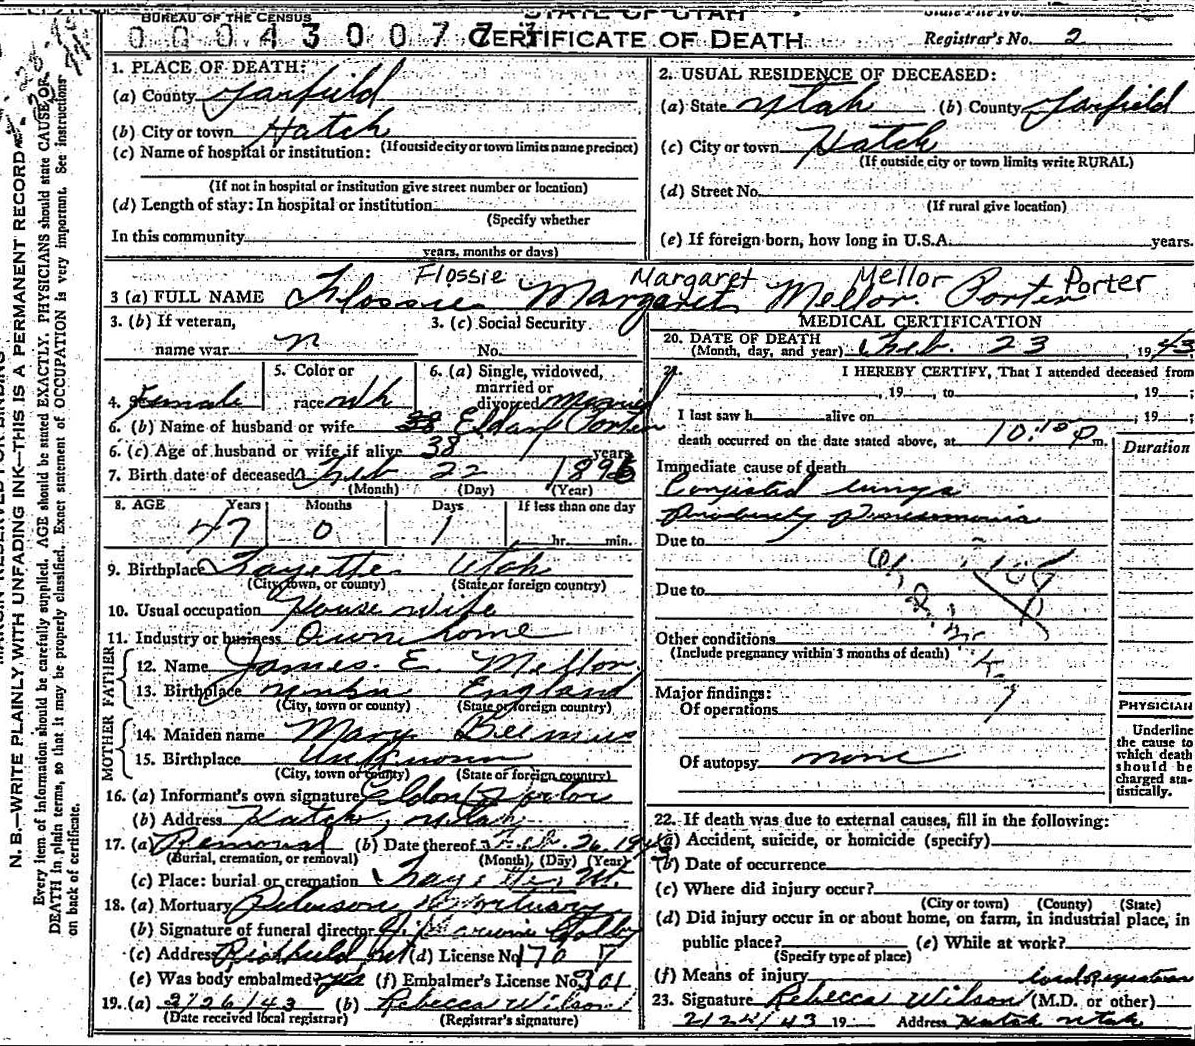 BUREAU OF THE CENSUS
STATE OF UTAH
State File No.
CERTIFICATE OF DEATH
Registrar's No. 2
MARGIN RESERVED FOR BINDING
N. B.—WRITE PLAINLY WITH UNFADING INK—THIS IS A PERMANENT RECORD
Every item of information should be carefully supplied. AGE should be stated EXACTLY. PHYSICIANS should state CAUSE OF
DEATH in plain terms, so that it may be properly classified. Exact statement of OCCUPATION is very important. See instructions
on back of certificate.
1. PLACE OF DEATH:
(a) County Garfield
(b) City or town Hatch
(If outside city or town limits name precinct)
(c) Name of hospital or institution:
(If not in hospital or institution give street number or location)
(d) Length of stay: In hospital or institution
(Specify whether
In this community
years, months or days)
2. USUAL RESIDENCE OF DECEASED:
(a) State Utah (b) County Garfield
(c) City or town Hatch
(If outside city or town limits write RURAL)
(d) Street No.
(If rural give location)
(e) If foreign born, how long in U.S.A. years.
Flossie Margaret Mellor Porter
3 (a) FULL NAME Flossie Margaret Mellor Porter
3. (b) If veteran,
name war n
3. (c) Social Security
No.
4. Sex Female
5. Color or
race wh
6. (a) Single, widowed,
married or
divorced Married
6. (b) Name of husband or wife 38 Eldon Porter
6. (c) Age of husband or wife if alive 38 years
7. Birth date of deceased Feb 22 1896
(Month) (Day) (Year)
8. AGE Years Months Days If less than one day
47 0 1 hr. min.
9. Birthplace Fayette Utah
(City, town, or county) (State or foreign country)
10. Usual occupation House wife
11. Industry or business Own home
FATHER
12. Name James E. Mellor
13. Birthplace England
(City, town or county) (State or foreign country)
MOTHER
14. Maiden name Mary
15. Birthplace Unknown
(City, town or county) (State of foreign country)
16. (a) Informant's own signature Eldon Porter
(b) Address Hatch, Utah
17. (a) Removal (b) Date thereof Feb. 26, 1943
(Burial, cremation, or removal) (Month) (Day) (Year)
(c) Place: burial or cremation Fayette, Ut.
18. (a) Mortuary Peterson Mortuary
(b) Signature of funeral director
(c) Address Richfield Ut (d) License No. 170
(e) Was body embalmed? yes (f) Embalmer's License No. 301
19. (a) 2/26/43 (b) Rebecca Wilson
(Date received local registrar) (Registrar's signature)
MEDICAL CERTIFICATION
20. DATE OF DEATH
(Month, day, and year) Feb. 23, 1943
21. I HEREBY CERTIFY, That I attended deceased from
, 19 , to , 19 ;
I last saw h alive on , 19 ;
death occurred on the date stated above, at 10:10 p m.
Duration
Immediate cause of death
Conjested lungs
Probably Pneumonia
Due to
Due to
Other conditions
(Include pregnancy within 3 months of death)
Major findings:
Of operations
Of autopsy none
PHYSICIAN
Underline
the cause to
which death
should be
charged sta-
tistically.
22. If death was due to external causes, fill in the following:
(a) Accident, suicide, or homicide (specify)
(b) Date of occurrence
(c) Where did injury occur?
(City or town) (County) (State)
(d) Did injury occur in or about home, on farm, in industrial place, in
public place? (e) While at work?
(Specify type of place)
(f) Means of injury
local Registrar
23. Signature Rebecca Wilson (M.D. or other)
2/24/43 19 Address Hatch Utah